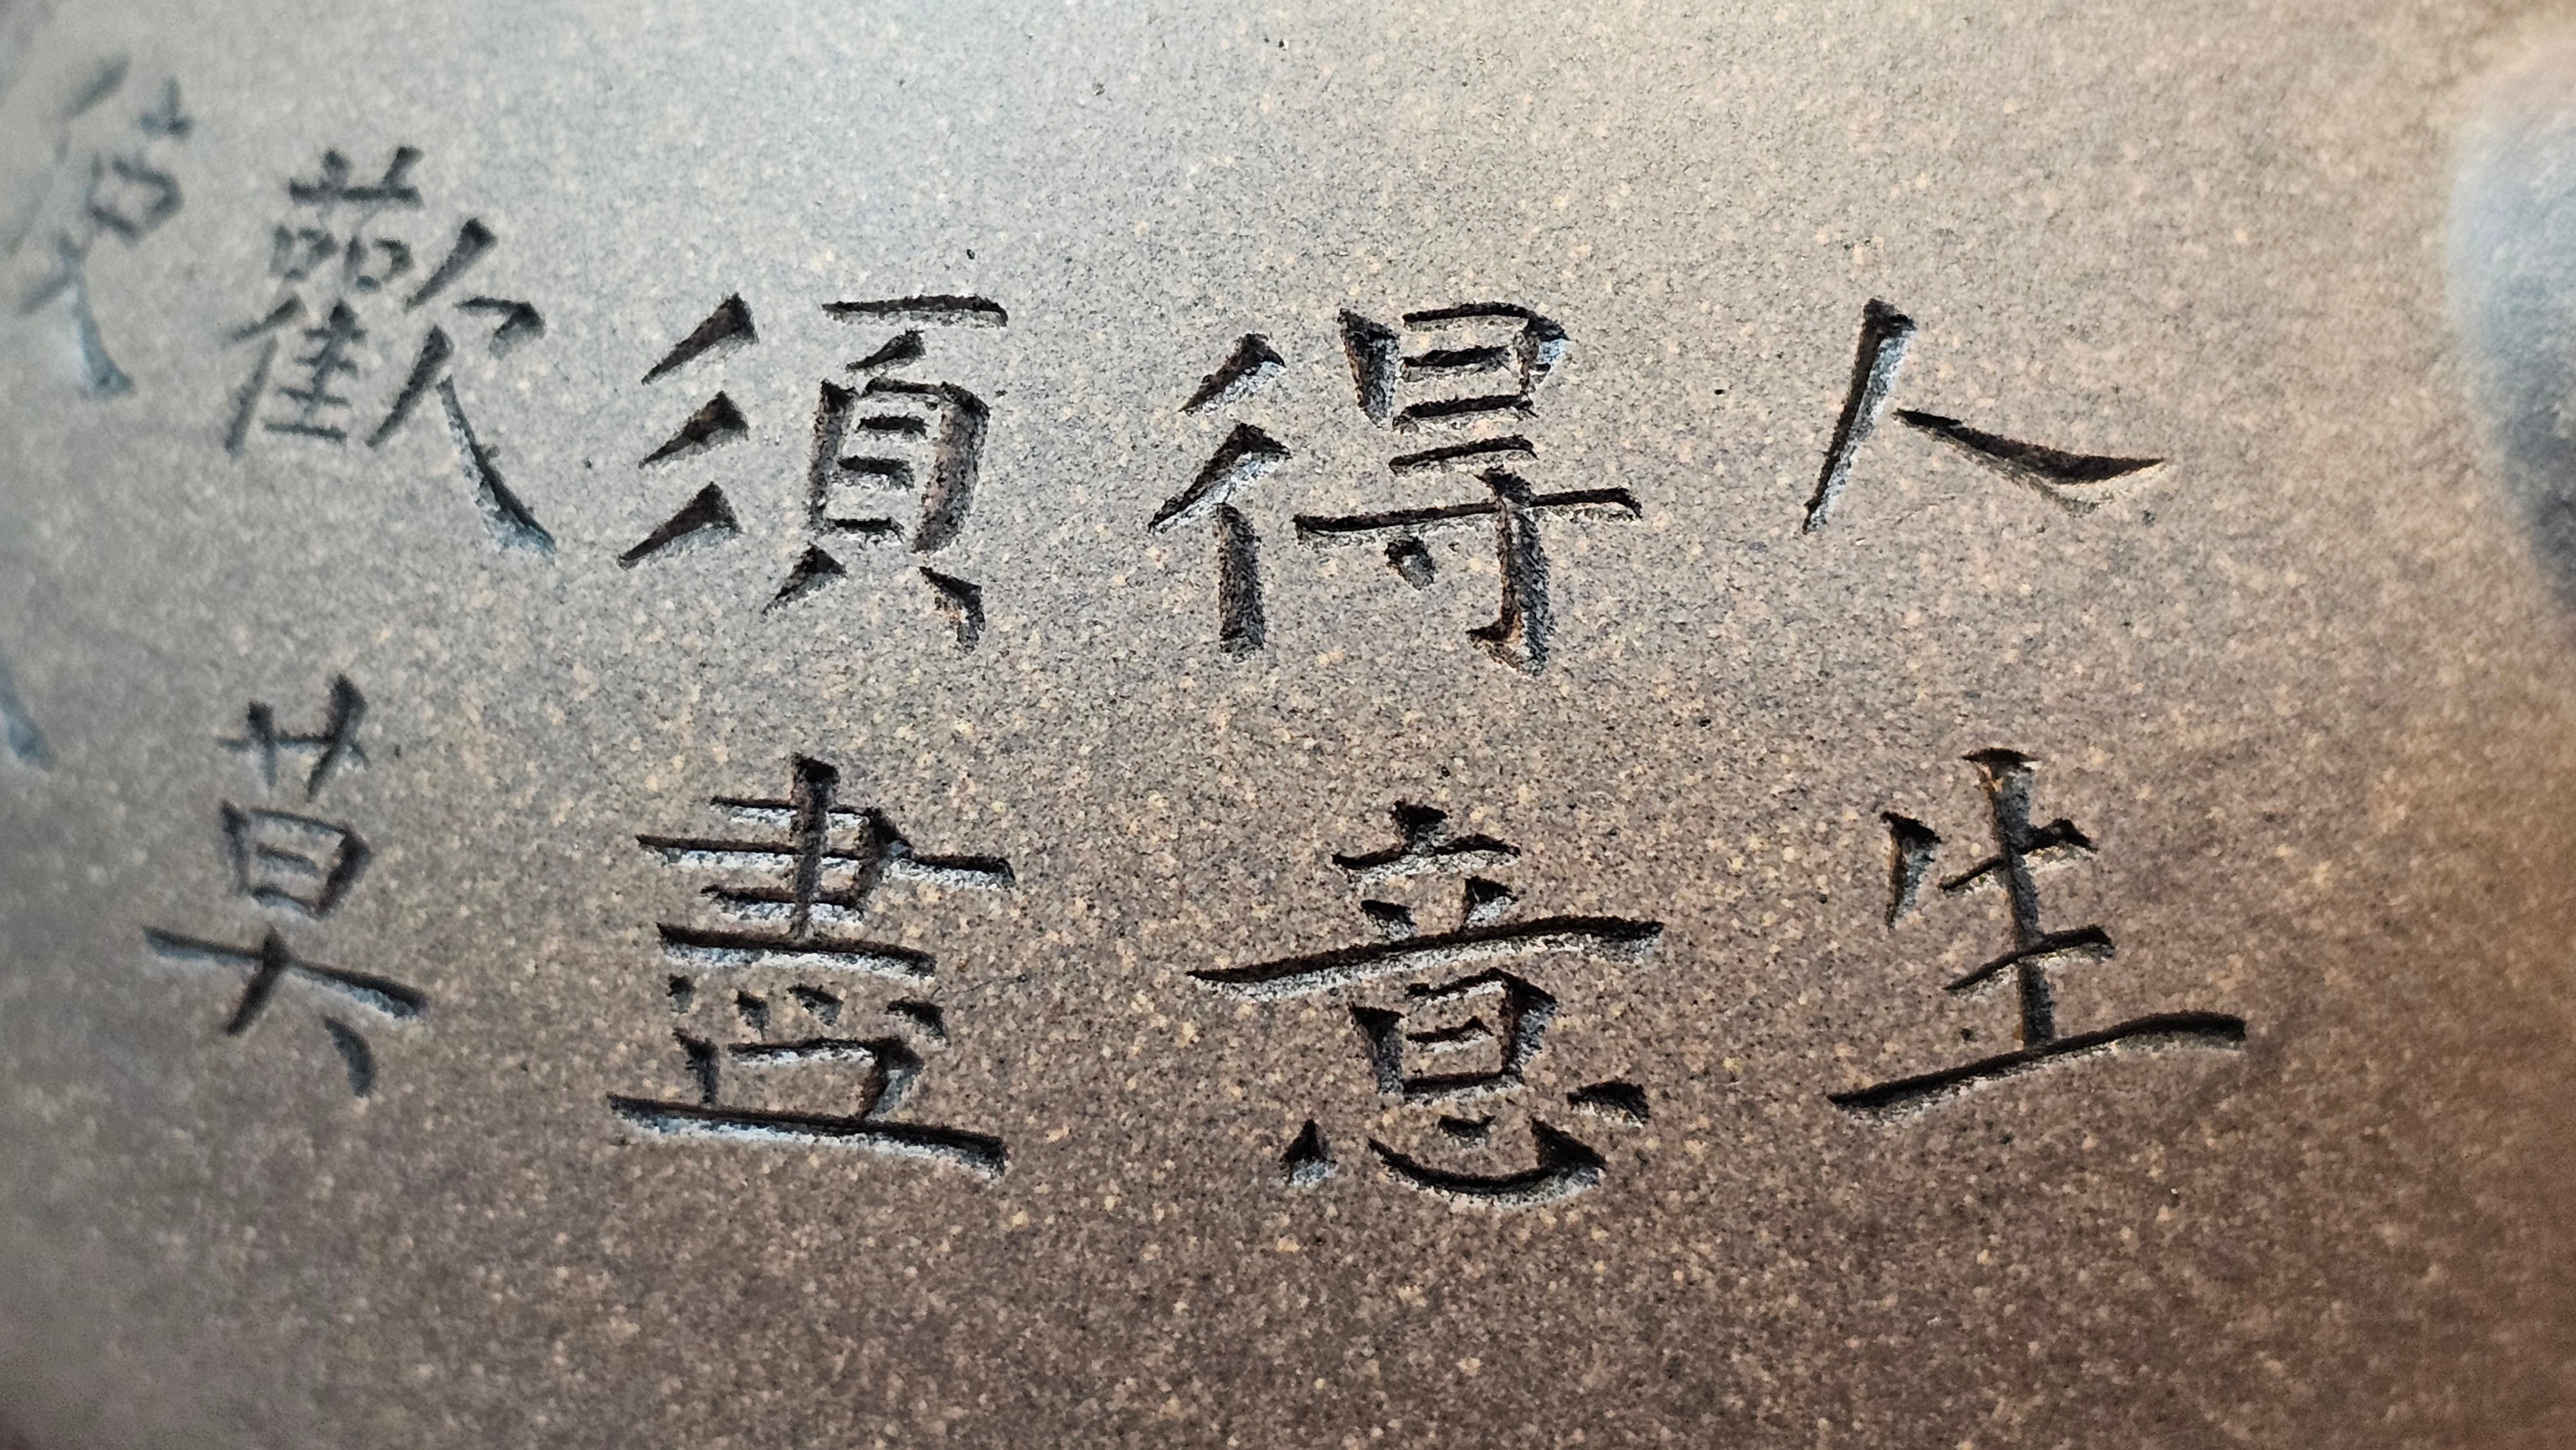 人生
得意
須盡
歡莫
使